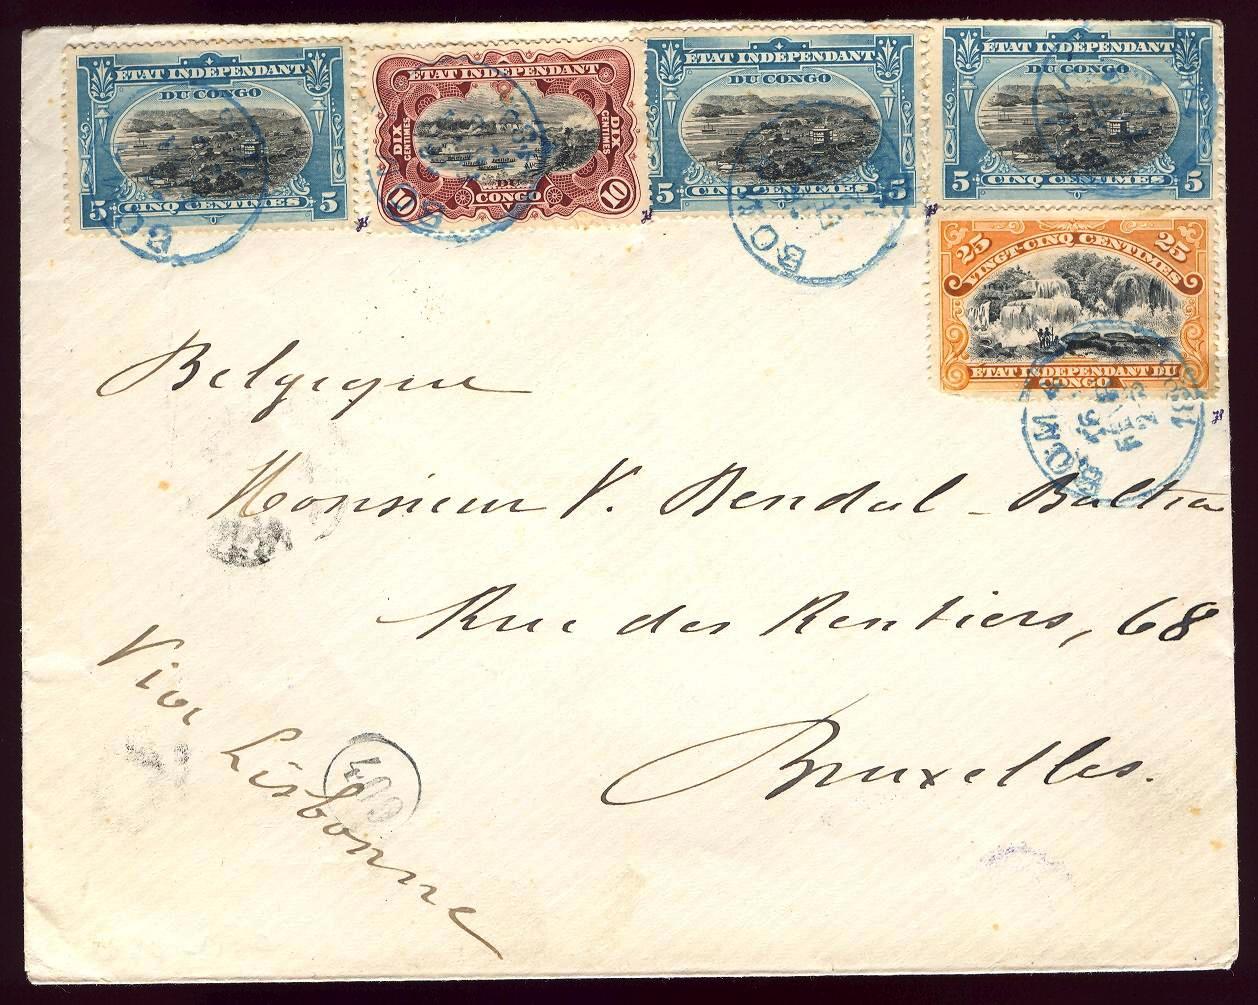 ÉTAT INDÉPENDANT
DU CONGO
5 CINQ CENTIMES 5
ÉTAT INDÉPENDANT
DIX CENTIMES
DIX CENTIMES
10 DU CONGO 10
ÉTAT INDÉPENDANT
DU CONGO
5 CINQ CENTIMES 5
ÉTAT INDÉPENDANT
DU CONGO
5 CINQ CENTIMES 5
25 VINGT-CINQ CENTIMES 25
ÉTAT INDÉPENDANT DU
CONGO
BOMA
Belgique
Monsieur V. Bendal - Baltia
Rue des Rentiers, 68
Bruxelles.
Via Lisbonne
409